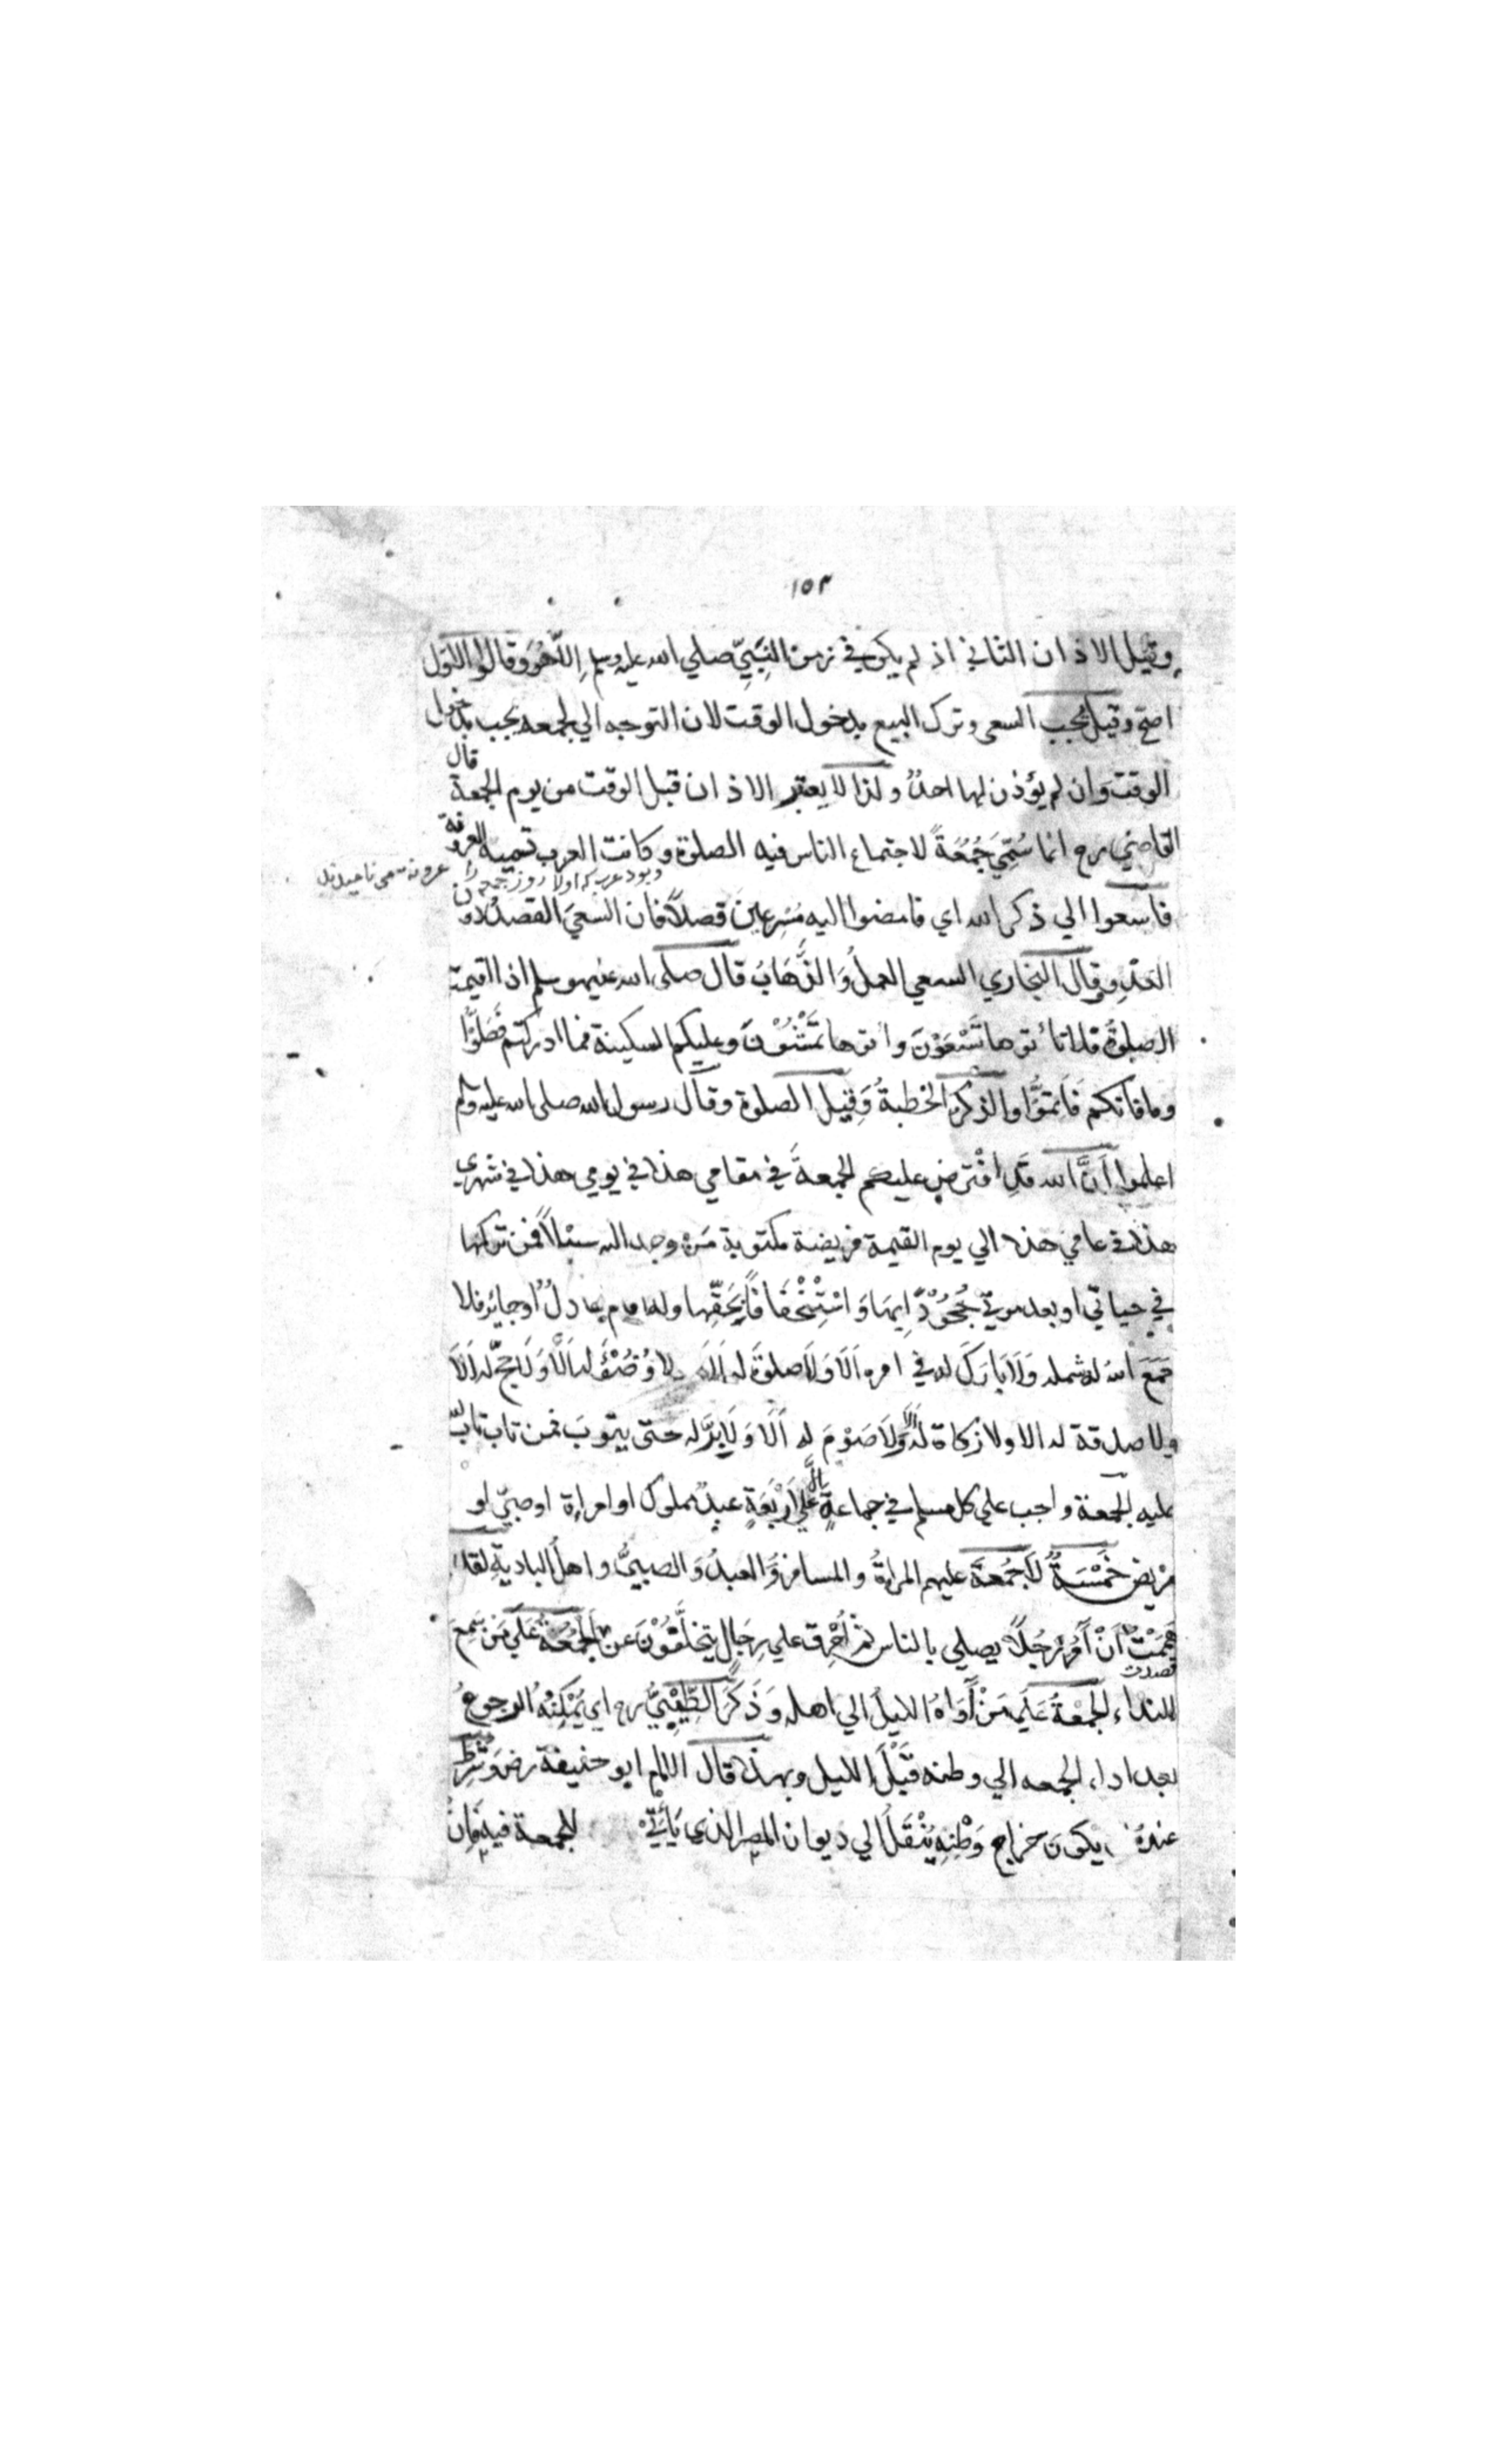 ١٥٣
وقيل الاذان الثاني اذ لم يكن في زمن النَّبِيِّ صلي الله عليه وسلم اِلَّا هُوَ وقالوا الاول
اصح وقيل يجب السعى وترك البيع بدخول الوقت لان التوجه الي الجمعه يجب بدخول
الوقت وَان لم يؤذن لها احدٌ ولذا لا يعتبر الاذان قبل الوقت من يوم الجمعة قال
القاضي رح انما سُمِّيَ جُمُعَةً لاجتماع الناس فيه الصلوة وكانت العرب تسميه العروبة
فاسعوا الي ذكر الله اي فامضوا اليه مُسْرِعِينَ قصداً فان السعيَ القصدُ دون
العَدْوِ وقال البخاري السعي العملُ وَالذَّهَابُ قال صلى الله عليه وسلم اذا اقيمت
الصلوةُ فلا تأتوها تَسْعَوْنَ وأتوها تَمْشُوْنَ وعليكم السكينة فما ادركتم فَصَلُّوْا
وما فاتكم فَاَتِمُّوْا والذكر الخطبةُ وَقيل الصلوة وقال رسول الله صلى الله عليه وسلم
اعلموا اَنَّ الله قَدِ افْتَرَضَ عليكم الجمعةَ في مقامي هذا في يومي هذا في شهري
هذا في عامي هذا الي يوم القيمة فريضة مكتوبة مَنْ وجد اليه سبيلاً فمن تركها
في حياتي او بعد موتي جُحُوْدً اِيهَا وَ اسْتِخْفَافًا بِحَقِّهَا وله امام عادلٌ او جايز فلا
جَمَعَ اللهُ له شمله وَلَا بَارَكَ له في امره اَلَا وَلَا صلوةَ له اَلَا ولا وُضُوْءَ له اَلَا وَلَا حَجَّ له اَلَا
ولا صدقة له الا ولا زكاة لَهُ اَلَا وَلَا صَوْمَ له اَلَا وَلَا بِرَّ له حَتى يتوبَ فمن تاب تاب الله
عليه الجمعة واجب علي كل مسلم في جماعةٍ اِلَّا علي اَرْبَعَةٍ عبدٌ مملوك او امراة او صبيّ او
مريض خَمْسَةٌ لَا جُمُعَةَ عليهم المراةُ والمسافرُ وَالعبدُ وَالصبيُّ واهلُ الباديةِ لقد
هَمَمْتُ اَنْ آمُرَ رَجُلاً يصلي بالناس ثمّ اُحْرِقَ علي رِجَالٍ يتخلَّفُوْنَ عن الجُمُعَةِ الجُمُعَةُ عَلَي مَن سَمِعَ
قصدت
النداء الجُمْعَةُ عَلَي مَنْ آوَاهُ الليلُ الي اهله وَذَكَرَ الطِّيْبِيُّ رح اي يُمْكِنُهُ الرجوعُ
بعد اداء الجمعه الي وطنه قَبْلَ الليل وبهذا قال الامام ابو حنيفة رض وَشرط
عندهُ ان يكون خراج وَطْنِهِ يُنْقَلُ الي ديوان المصر الذى يَاتِي للجمعة فيه فان